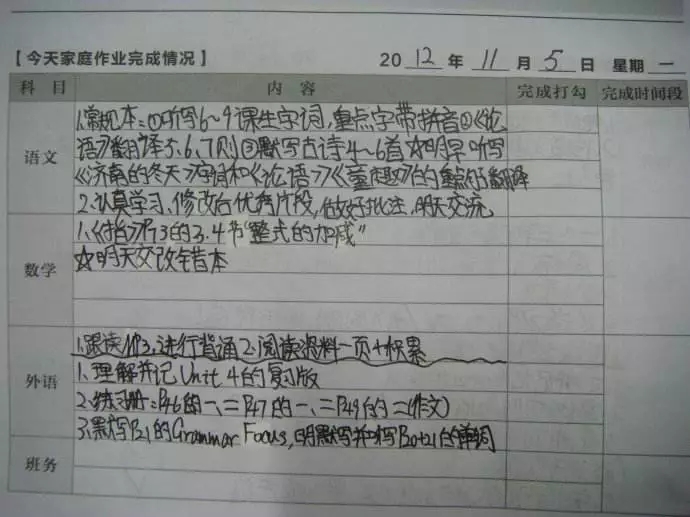 【今天家庭作业完成情况】 2012年11月5日 星期一
科目 内容 完成打勾 完成时间段
语文
1.常规本:①听写6~9课生字词,重点字带拼音②《论
语》翻译5、6、7则③默写古诗4~6首☆明早听写
《济南的冬天》字词和《论语》《童趣》的重点句翻译
2.认真学习、修改台优秀片段,做好批注,明天交流
数学
1.《指》P73的3.4节“整式的加减”
☆明天交改错本
外语
1.跟读MP3,进行背诵2.阅读资料一页+积累
1.理解并记Unit 4的复习版
2.练习册:P46的一、二P47的一、二P49的二(作文)
3.默写P21的Grammar Focus,明默写并听写P20+21的单词
班务